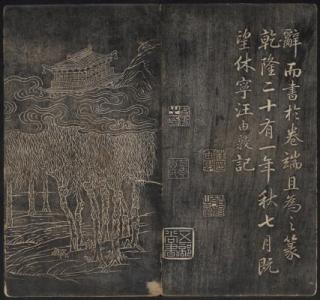 辭而書於卷端且為之篆
乾隆二十有一年秋七月既
望休寧汪由敦記